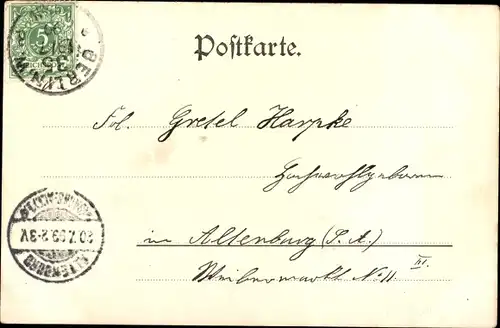 5
BERLIN N.W.
35
Postkarte.
Frl. Gretel Harpke
Hochwohlgeboren
in Altenburg (S. A.)
Weibermarkt No 11 III.
ALTENBURG
20.V.99.2-3V.